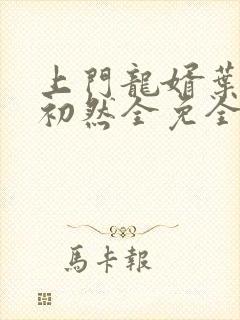 上門龍婿葉
初然全免全
馬卡報